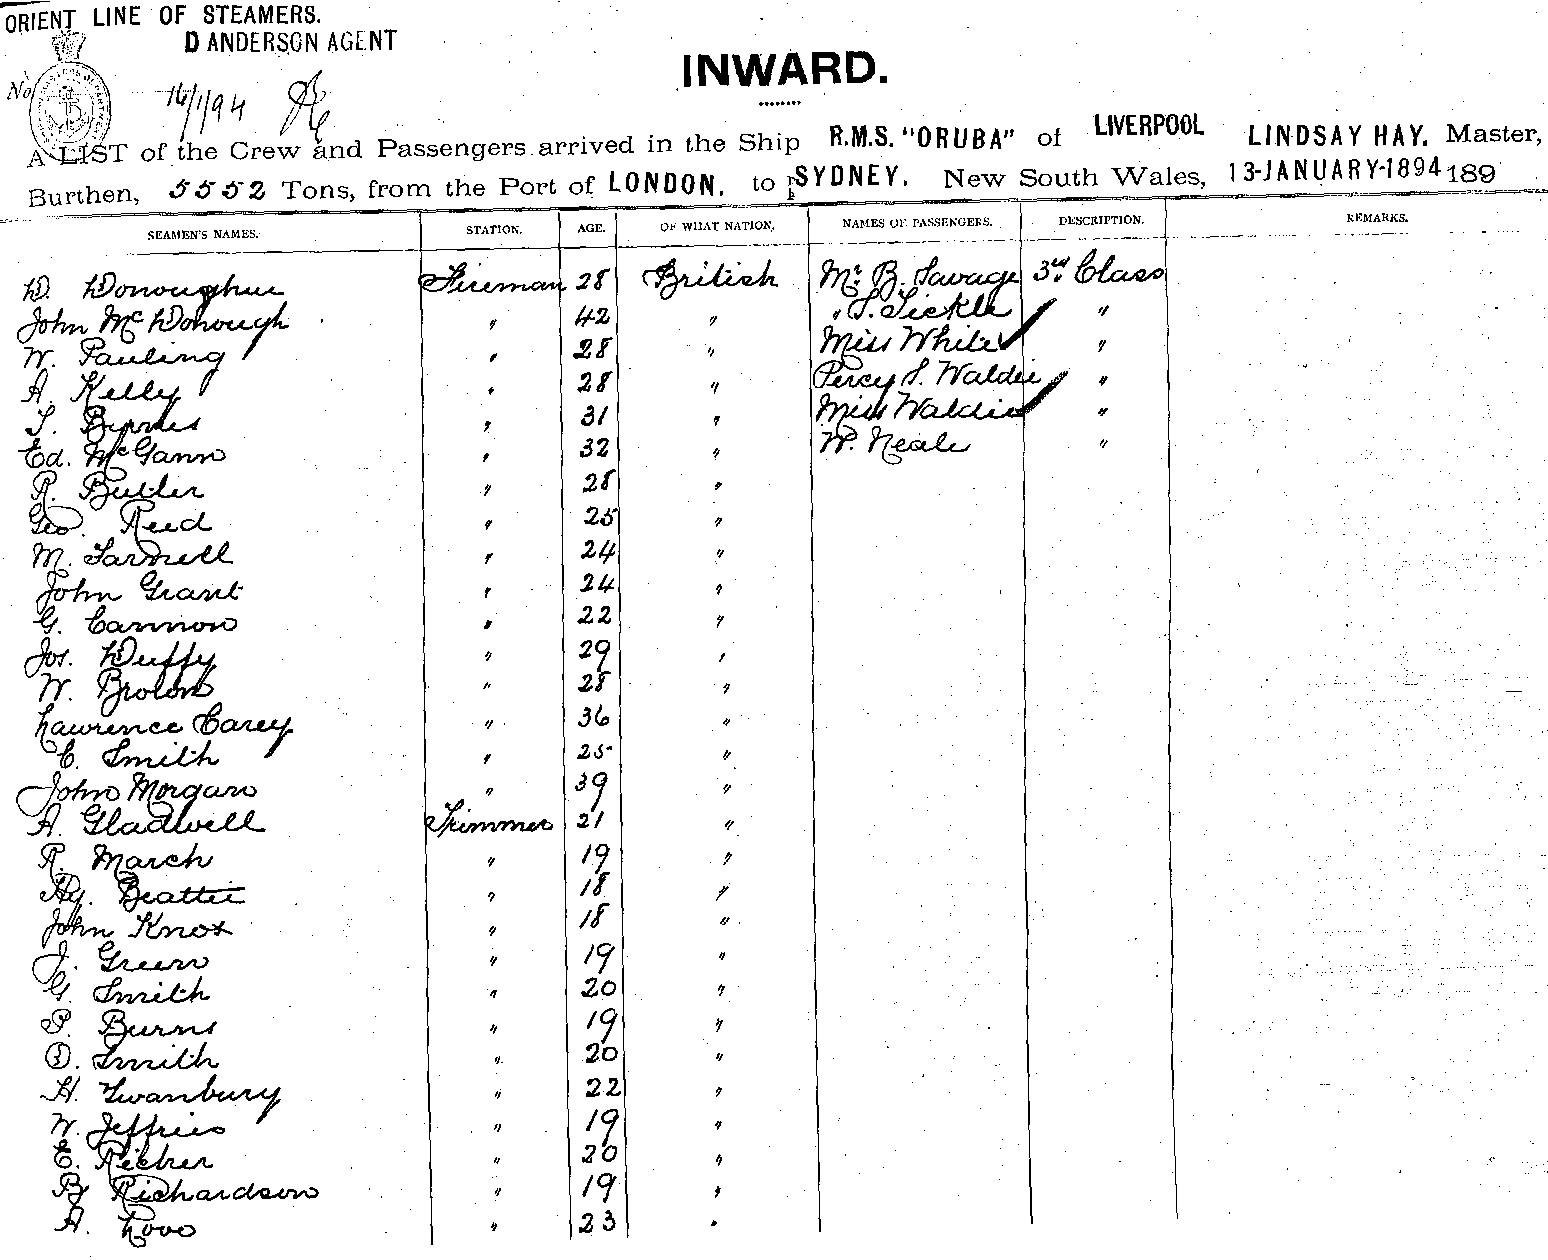 ORIENT LINE OF STEAMERS.
D ANDERSON AGENT
INWARD.
No.
16/1/94
A LIST of the Crew and Passengers arrived in the Ship R.M.S. "ORUBA" of LIVERPOOL LINDSAY HAY. Master,
Burthen, 5552 Tons, from the Port of LONDON. to SYDNEY. New South Wales, 13-JANUARY-1894 189
SEAMEN'S NAMES. STATION. AGE. OF WHAT NATION. NAMES OF PASSENGERS. DESCRIPTION. REMARKS.
D. Donoughue Fireman 28 British Mr. B. Savage 3rd Class
John McDonough " 42 " " S. Sickle "
W. Pauling " 28 " Miss White "
A. Kelly " 28 " Percy S. Waldie "
T. Byrnes " 31 " Miss Waldie "
Ed. McGann " 32 " W. Neale "
R. Butler " 28 "
Geo. Reed " 25 "
M. Farrell " 24 "
John Grant " 24 "
G. Cannon " 22 "
Jos. Duffy " 29 "
W. Brown " 28 "
Lawrence Carey " 36 "
C. Smith " 25 "
John Morgan " 39 "
A. Gladwell Trimmer 21 "
R. March " 19 "
Hy. Beattie " 18 "
John Knox " 18 "
J. Green " 19 "
G. Smith " 20 "
P. Burns " 19 "
D. Smith " 20 "
H. Swanbury " 22 "
W. Jeffries " 19 "
E. " 20 "
Richardson " 19 "
A. " 23 "